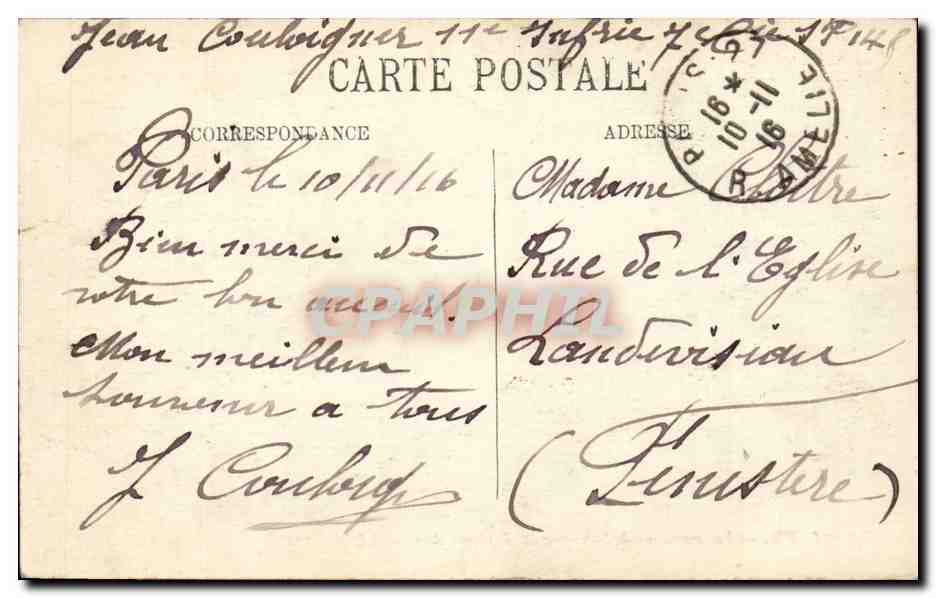 Jean Couloigner 11e Infrie 7e Cie
CARTE POSTALE
CORRESPONDANCE
ADRESSE
16 *
10 - 11
16
R. AMELIE
Paris le 10/11/16
Bien merci de
votre bon
Mon meilleur
souvenir a tous
J Couloig
Madame
Rue de l'Eglise
Landivisiau
(Finistere)
CPAPHIL